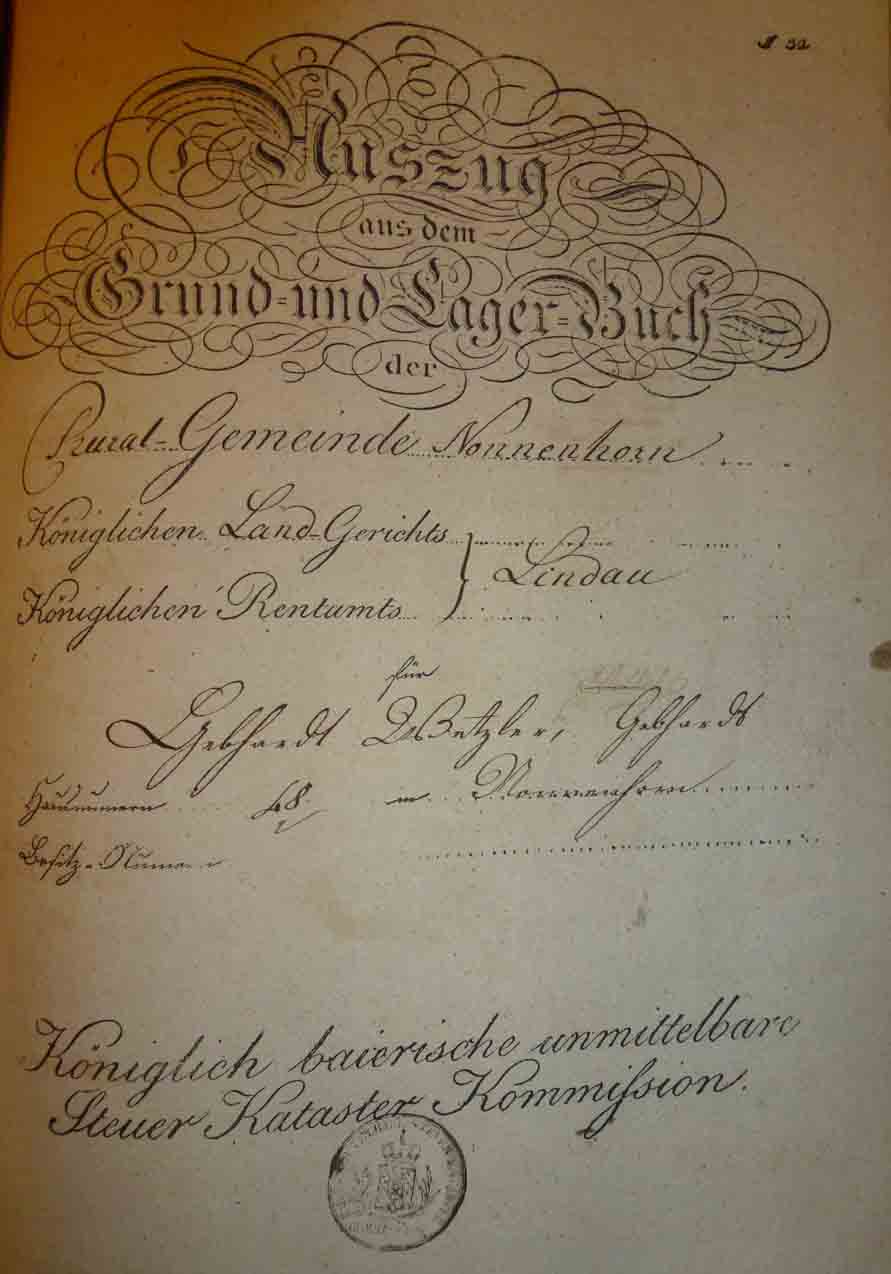 N 52
Auszug
aus dem
Grund- und Lager-Buch
der
Rural-Gemeinde Nonnenhorn
Königlichen Land-Gerichts
Lindau
Königlichen Rentamts
für
Gebhardt Wetzler, Gebhardt
Hausnummern 68 in Nonnenhorn
Besitz-Numern
Königlich baierische unmittelbare
Steuer Kataster Kommiſsion.